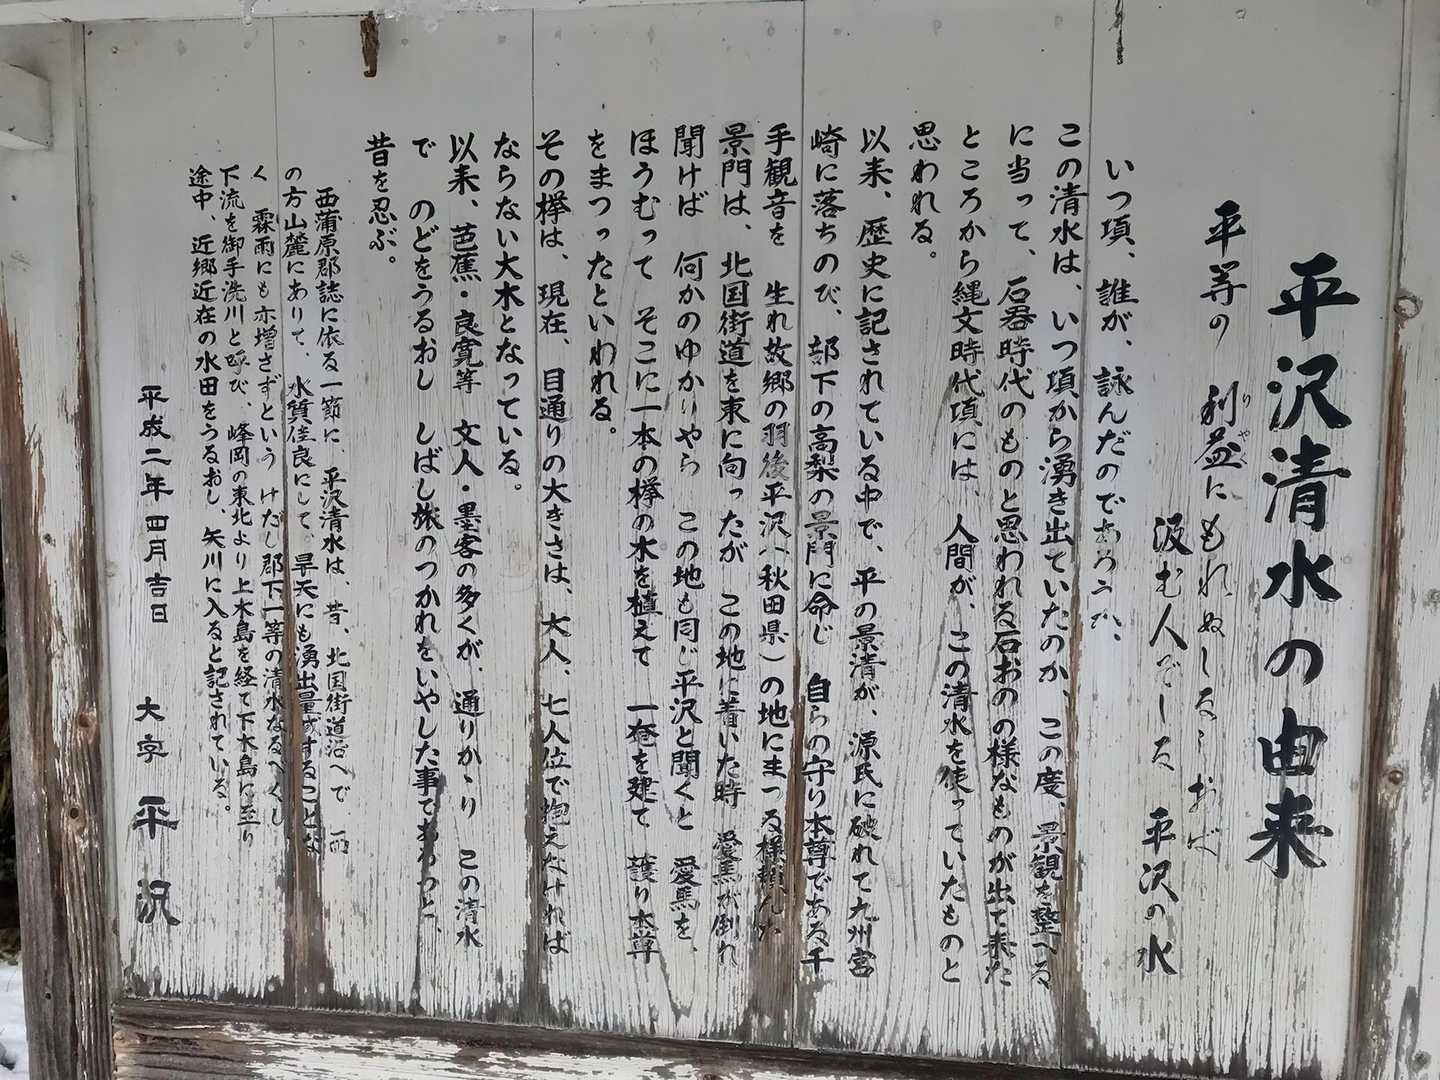 平沢清水の由来
平等の 利益にもれぬしるしおば
りやく
汲む人ぞしる 平沢の水
いつ項、誰が、詠んだのであろうか、
この清水は、いつ項から湧き出ていたのか、この度、景観を整へる
に当って、石呑時代のものと思われる石おのの様なものが出て来た
ところから縄文時代項には、人間が、この清水を使っていたものと
思われる。
以来、歴史に記されている中で、平の景清が、源氏に破れて九州宮
崎に落ちのび、部下の高梨の景門に命じ 自らの守り本尊である千
手観音を 生れ故郷の羽後平沢(秋田県)の地にまつる様頼んだ
景門は、北国街道を東に向ったが この地に着いた時 愛馬が倒れ
聞けば 何かのゆかりやら この地も同じ平沢と聞くと 愛馬を、
ほうむって そこに一本の欅の木を植えて 一奄を建て 護り本尊
をまつったといわれる。
その欅は、現在、目通りの大きさは、大人、七人位で抱えなければ
ならない大木となっている。
以来、芭蕉・良寛等 文人・墨客の多くが、通りかゝり この清水
で のどをうるおし しばし旅のつかれをいやした事であろうと、
昔を忍ぶ。
西蒲原郡誌に依る一節に、平沢清水は、昔、北国街道沿へで、西
の方山麓にありて、水質佳良にして、旱天にも湧出量減ずることな
く 霖雨にも亦増さずという けだし郡下一等の清水なるべくし
下流を御手洗川と呼び、峰岡の東北より上木島を経て下木島に至り
途中、近郷近在の水田をうるおし、矢川に入ると記されている。
平成二年四月吉日
大字 平沢